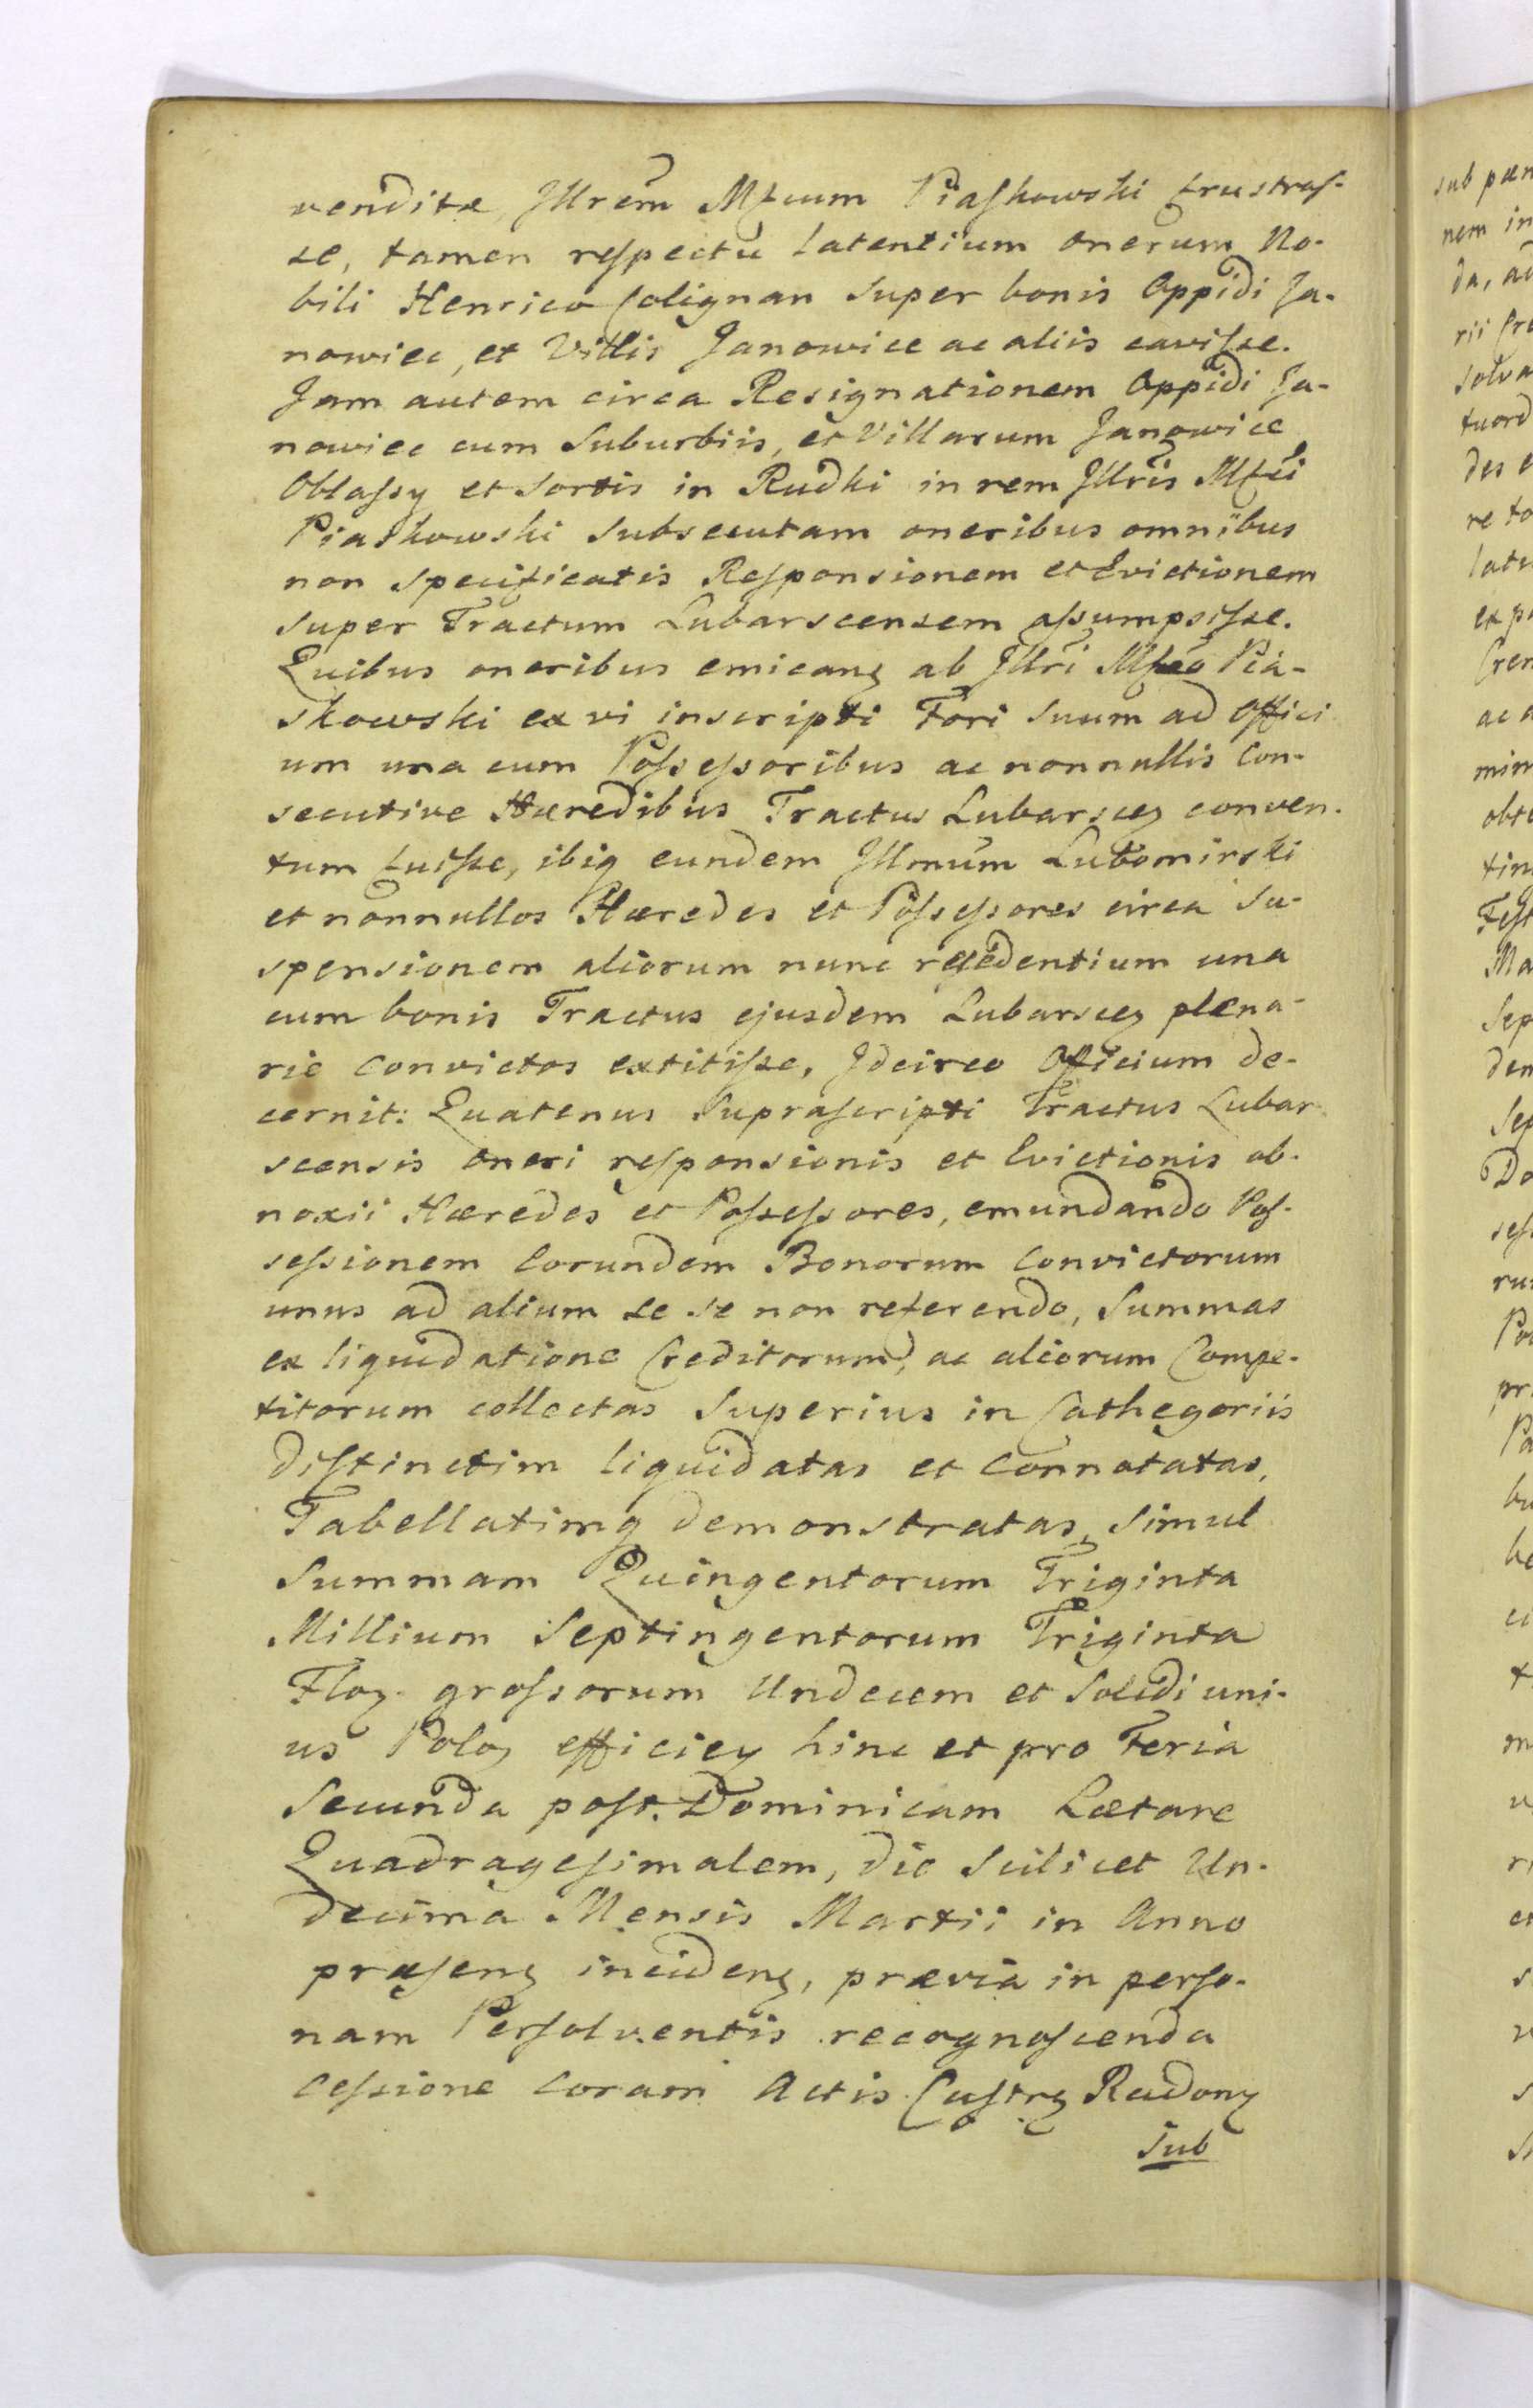 venditæ, Jllrem Mfcum Piaskowski frustras-
se, tamen respectu latentium onerum No-
bili Henrico Colignan super bonis Oppidi Ja-
nowiec, et Villis Janowice ac aliis cavisse.
Jam autem circa Resignationem Oppidi Ja-
nowiec cum Suburbiis, et Villarum Janowice
Oblassy et Sortis in Rudki in rem Jllris Mfci
Piaskowski subsecutam oneribus omnibus
non specificatis Responsionem et Evictionem
super Tractum Lubarscensem assumpsisse.
Quibus oneribus emicanz ab Jllri Mfco Pia-
skowski ex vi inscripti Fori suum ad Offici
um una cum Possessoribus ac nonnullis Con-
secutive Hæredibus Tractus Lubarscez conven-
tum fuisse, ibiq eundem Jllmum Lubomirski
et nonnullos Hæredes et Possessores circa su-
spensionem aliorum nunc residentium una
cum bonis Tractus ejusdem Lubarscez plena-
rie convictos extitisse, Jdcirco Officium de-
cernit: Quatenus Suprascripti Tractus Lubar
scensis oneri responsionis et Evictionis ob-
noxii Hæredes et Possessores, emundando Pos-
sessionem Eorundem Bonorum Convictorum
unus ad alium se se non referendo, Summas
ex liquidatione Creditorum, ac aliorum Compe-
titorum collectas superius in Cathegoriis
distinctim liquidatas et Connotatas,
Tabellatimq demonstratas, simul
Summam Quingentorum Triginta
Millium Septingentorum Triginta
Floz. grossorum Undecem et Solidi uni-
us Poloz efficiez hinc et pro Feria
Secunda post Dominicam Lætare
Quadragesimalem, die Scilicet Un-
decima Mensis Martii in Anno
præsenz incidenz, prævia in perso-
nam Persolventis recognoscenda
Cessione coram Actis Castrz Radomz
Sub